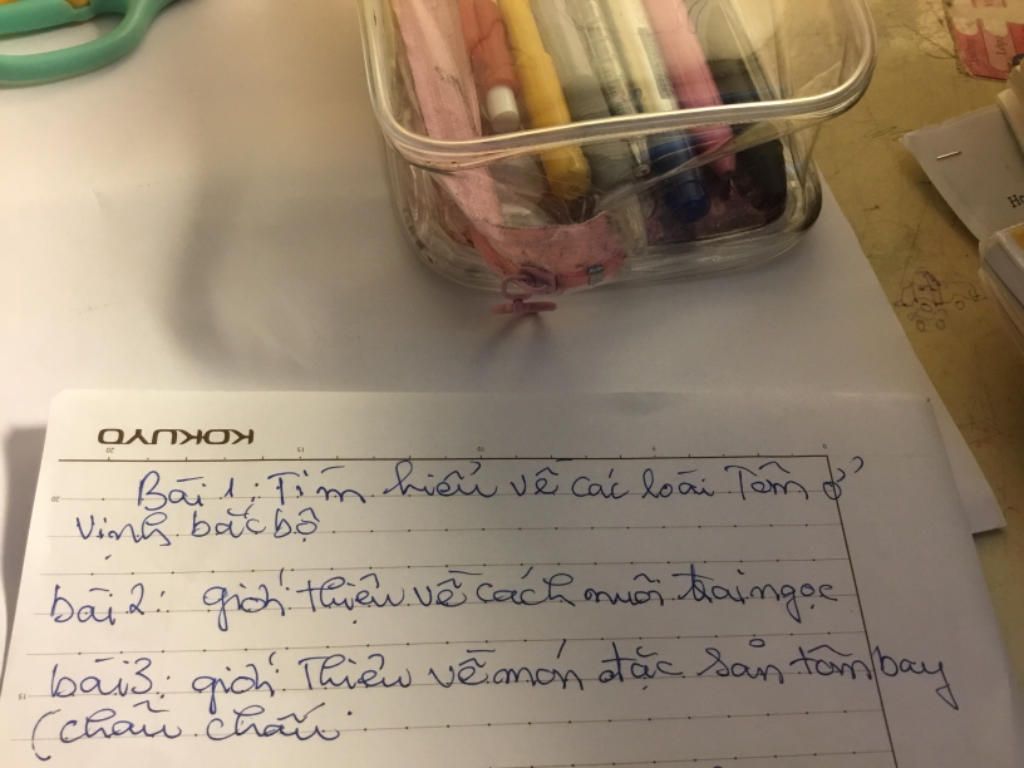 KOKUYO
Bài 1: Tìm hiểu về các loài Tôm ở
vịnh bắc bộ
bài 2: giới thiệu về cách nuôi trai ngọc
bài 3: giới Thiệu về món đặc sản tôm bay
(châu chấu